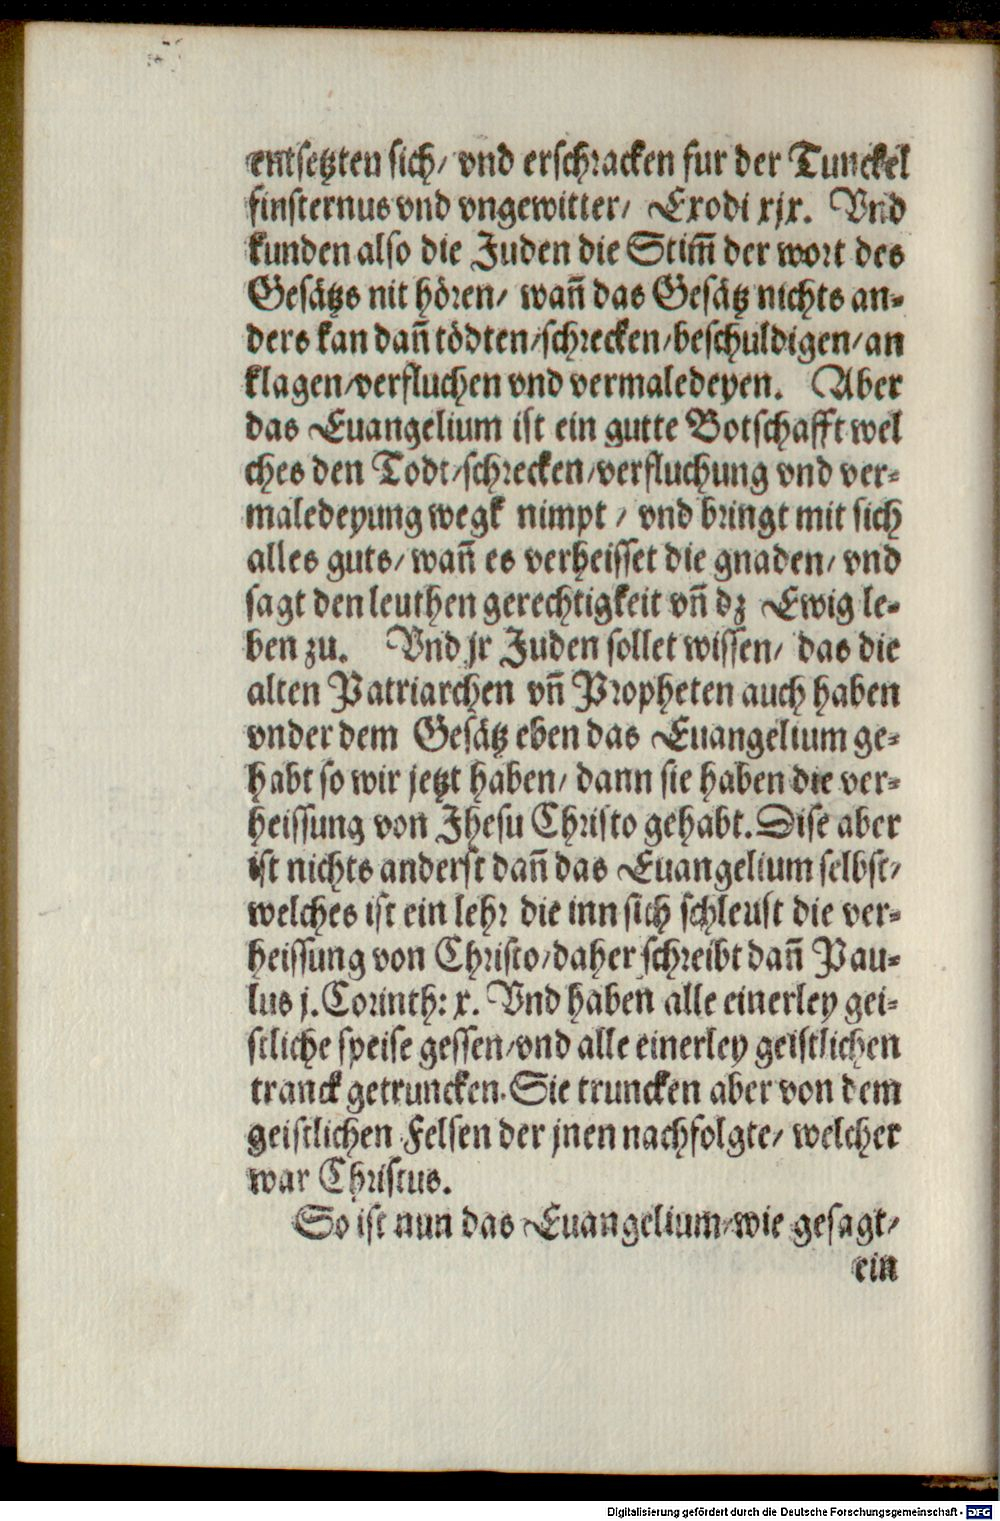 entsetzten sich/ vnd erschracken fur der Tunckel
finsternus vnd vngewitter/ Exodi xjx. Vnd
kunden also die Juden die Stim̃ der wort des
Gesätzs nit hören/ wañ das Gesätz nichts an-
ders kan dañ tödten/schrecken/beschuldigen/an
klagen/verfluchen vnd vermaledeyen. Aber
das Euangelium ist ein gutte Botschafft wel
ches den Todt/schrecken/verfluchung vnd ver-
maledeyung wegk nimpt / vnd bringt mit sich
alles guts/ wañ es verheisset die gnaden/ vnd
sagt den leuthen gerechtigkeit vñ dz Ewig le-
ben zu. Vnd jr Juden sollet wissen/ das die
alten Patriarchen vñ Propheten auch haben
vnder dem Gesätz eben das Euangelium ge-
habt so wir jetzt haben/ dann sie haben die ver-
heissung von Jhesu Christo gehabt. Dise aber
ist nichts anderst dañ das Euangelium selbst/
welches ist ein lehr die inn sich schleust die ver-
heissung von Christo/daher schreibt dañ Pau-
lus j. Corinth: x. Vnd haben alle einerley gei-
stliche speise gessen/vnd alle einerley geistlichen
tranck getruncken. Sie truncken aber von dem
geistlichen Felsen der jnen nachfolgte/ welcher
war Christus.
So ist nun das Euangelium/wie gesagt/
ein
Digitalisierung gefördert durch die Deutsche Forschungsgemeinschaft - DFG